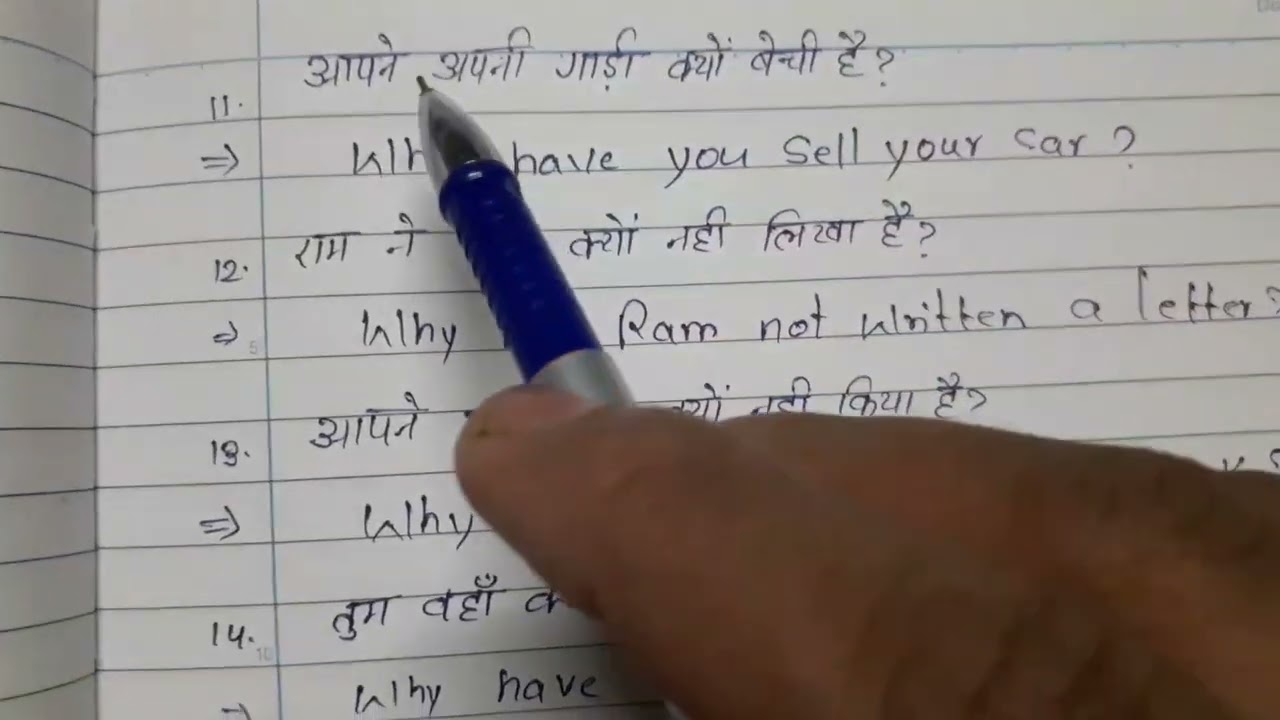 आपने अपनी गाड़ी क्यों बेची है?
11.
⇒ have you sell your car?
राम ने क्यों नही लिखा है?
12.
⇒ Why Ram not written a letter?
आपने क्यों नही किया है?
13.
⇒ Why
तुम वहाँ
14.
⇒ Why have